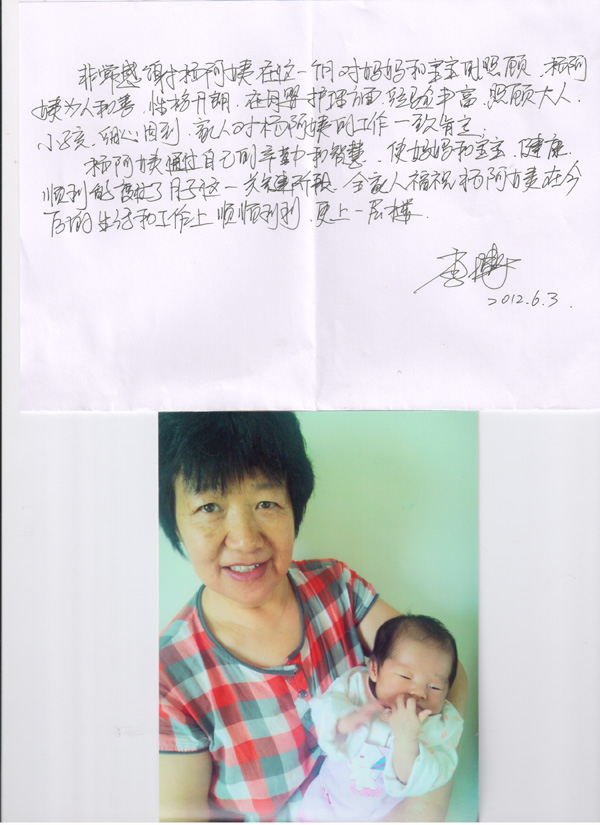 非常感谢杨阿姨在这一个月对妈妈和宝宝的照顾,杨阿
姨为人和善,性格开朗,在母婴护理方面经验丰富,照顾大人、
小孩,细心周到,家人对杨阿姨的工作一致肯定,
杨阿姨通过自己的辛勤和智慧,使妈妈和宝宝,健康
顺利的度过了月子这一关键阶段,全家人福祝杨阿姨在今
后的生活和工作上顺顺利利,更上一层楼.
2012.6.3.